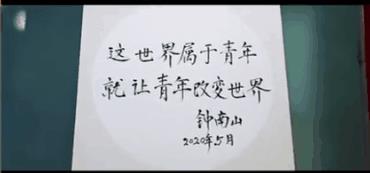 这世界属于青年
就让青年改變世界
钟南山
2020年5月